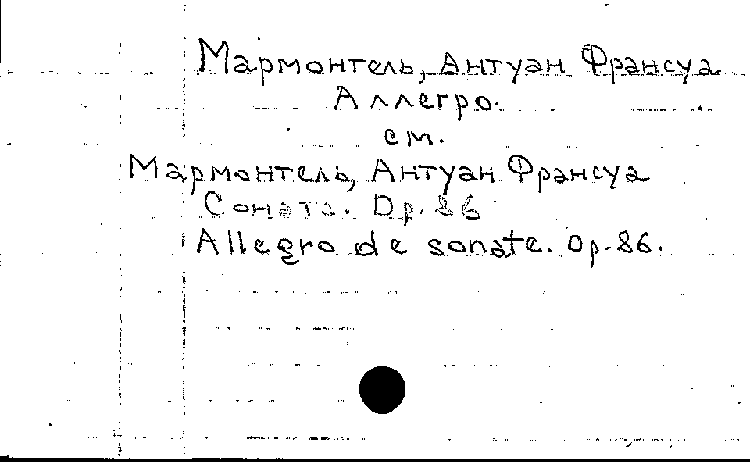 Мармонтель, Антуан Франсуа
Аллегро.
см.
Мармонтель, Антуан Франсуа
Соната. Op. 86
Allegro de sonate. Op. 86.